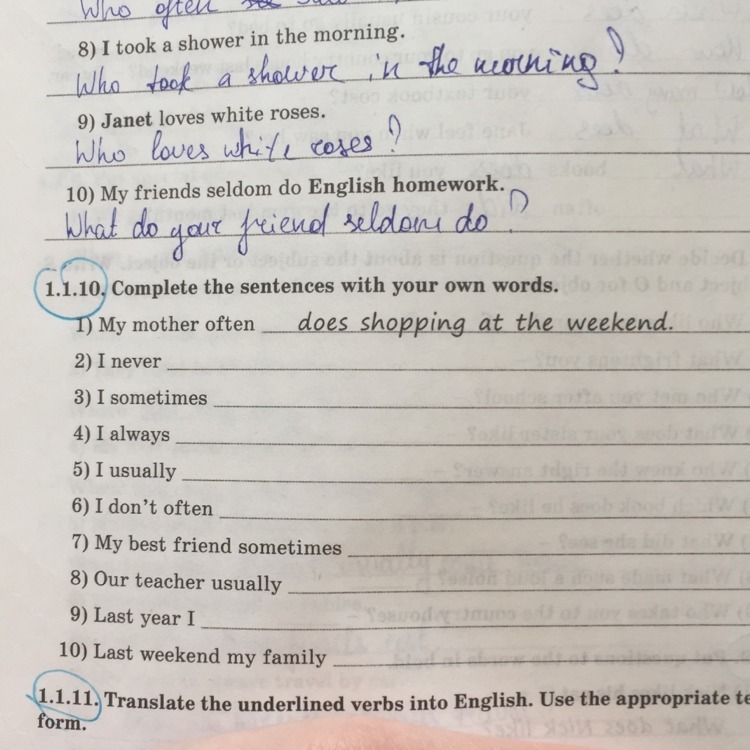 Who often
8) I took a shower in the morning.
Who took a shower in the morning?
9) Janet loves white roses.
Who loves white roses?
10) My friends seldom do English homework.
What do your friend seldom do?
1.1.10. Complete the sentences with your own words.
1) My mother often does shopping at the weekend.
2) I never
3) I sometimes
4) I always
5) I usually
6) I don't often
7) My best friend sometimes
8) Our teacher usually
9) Last year I
10) Last weekend my family
1.1.11. Translate the underlined verbs into English. Use the appropriate te
form.